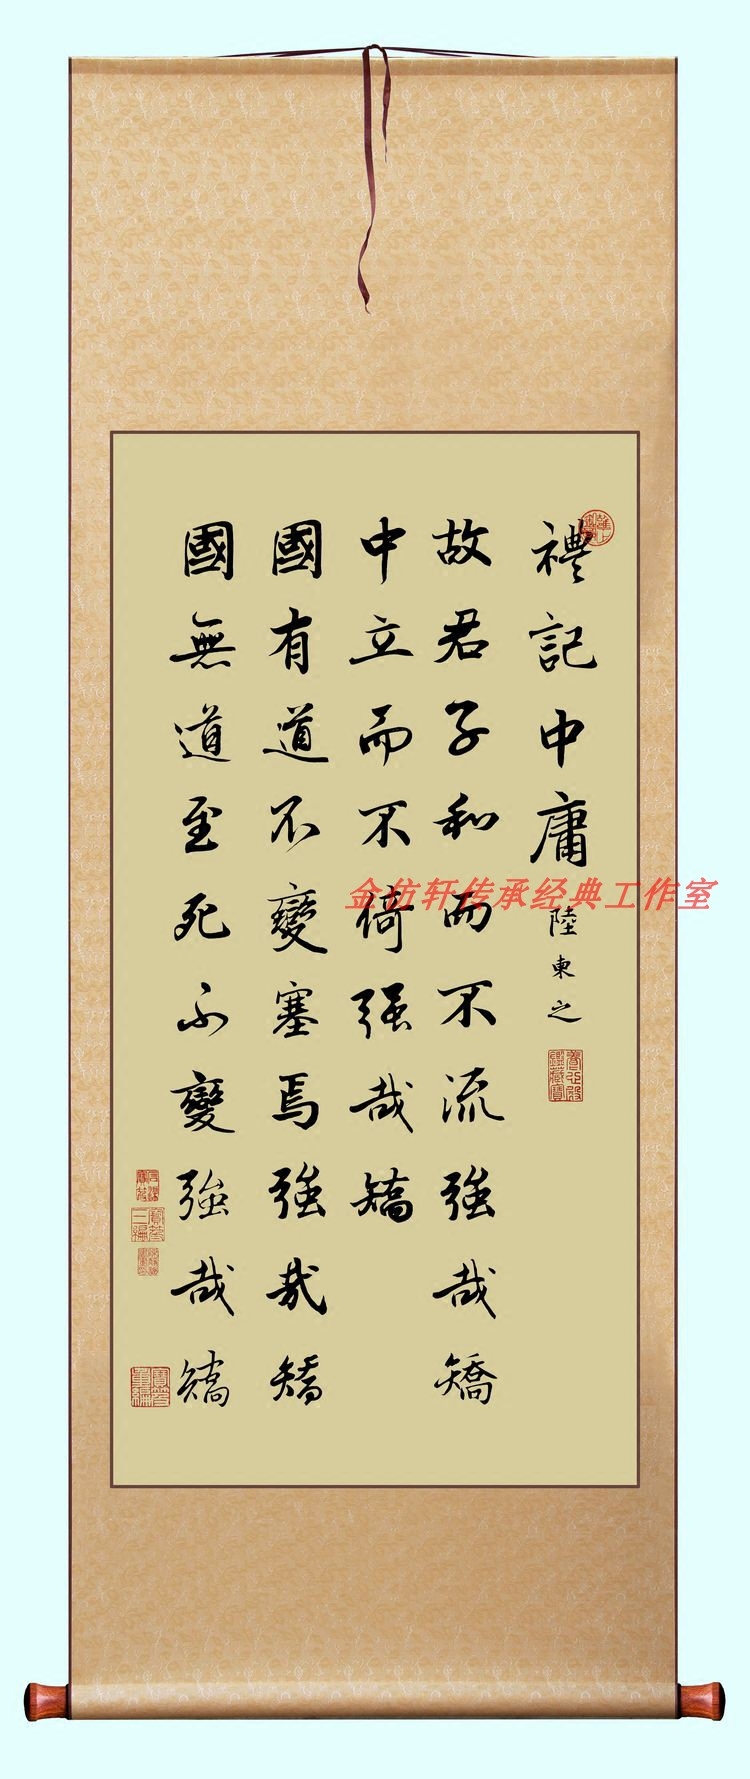 禮記中庸
陸東之
故君子和而不流強哉矯
中立而不倚强哉矯
國有道不變塞焉強哉矯
國無道至死不變強哉矯
金仿轩传承经典工作室